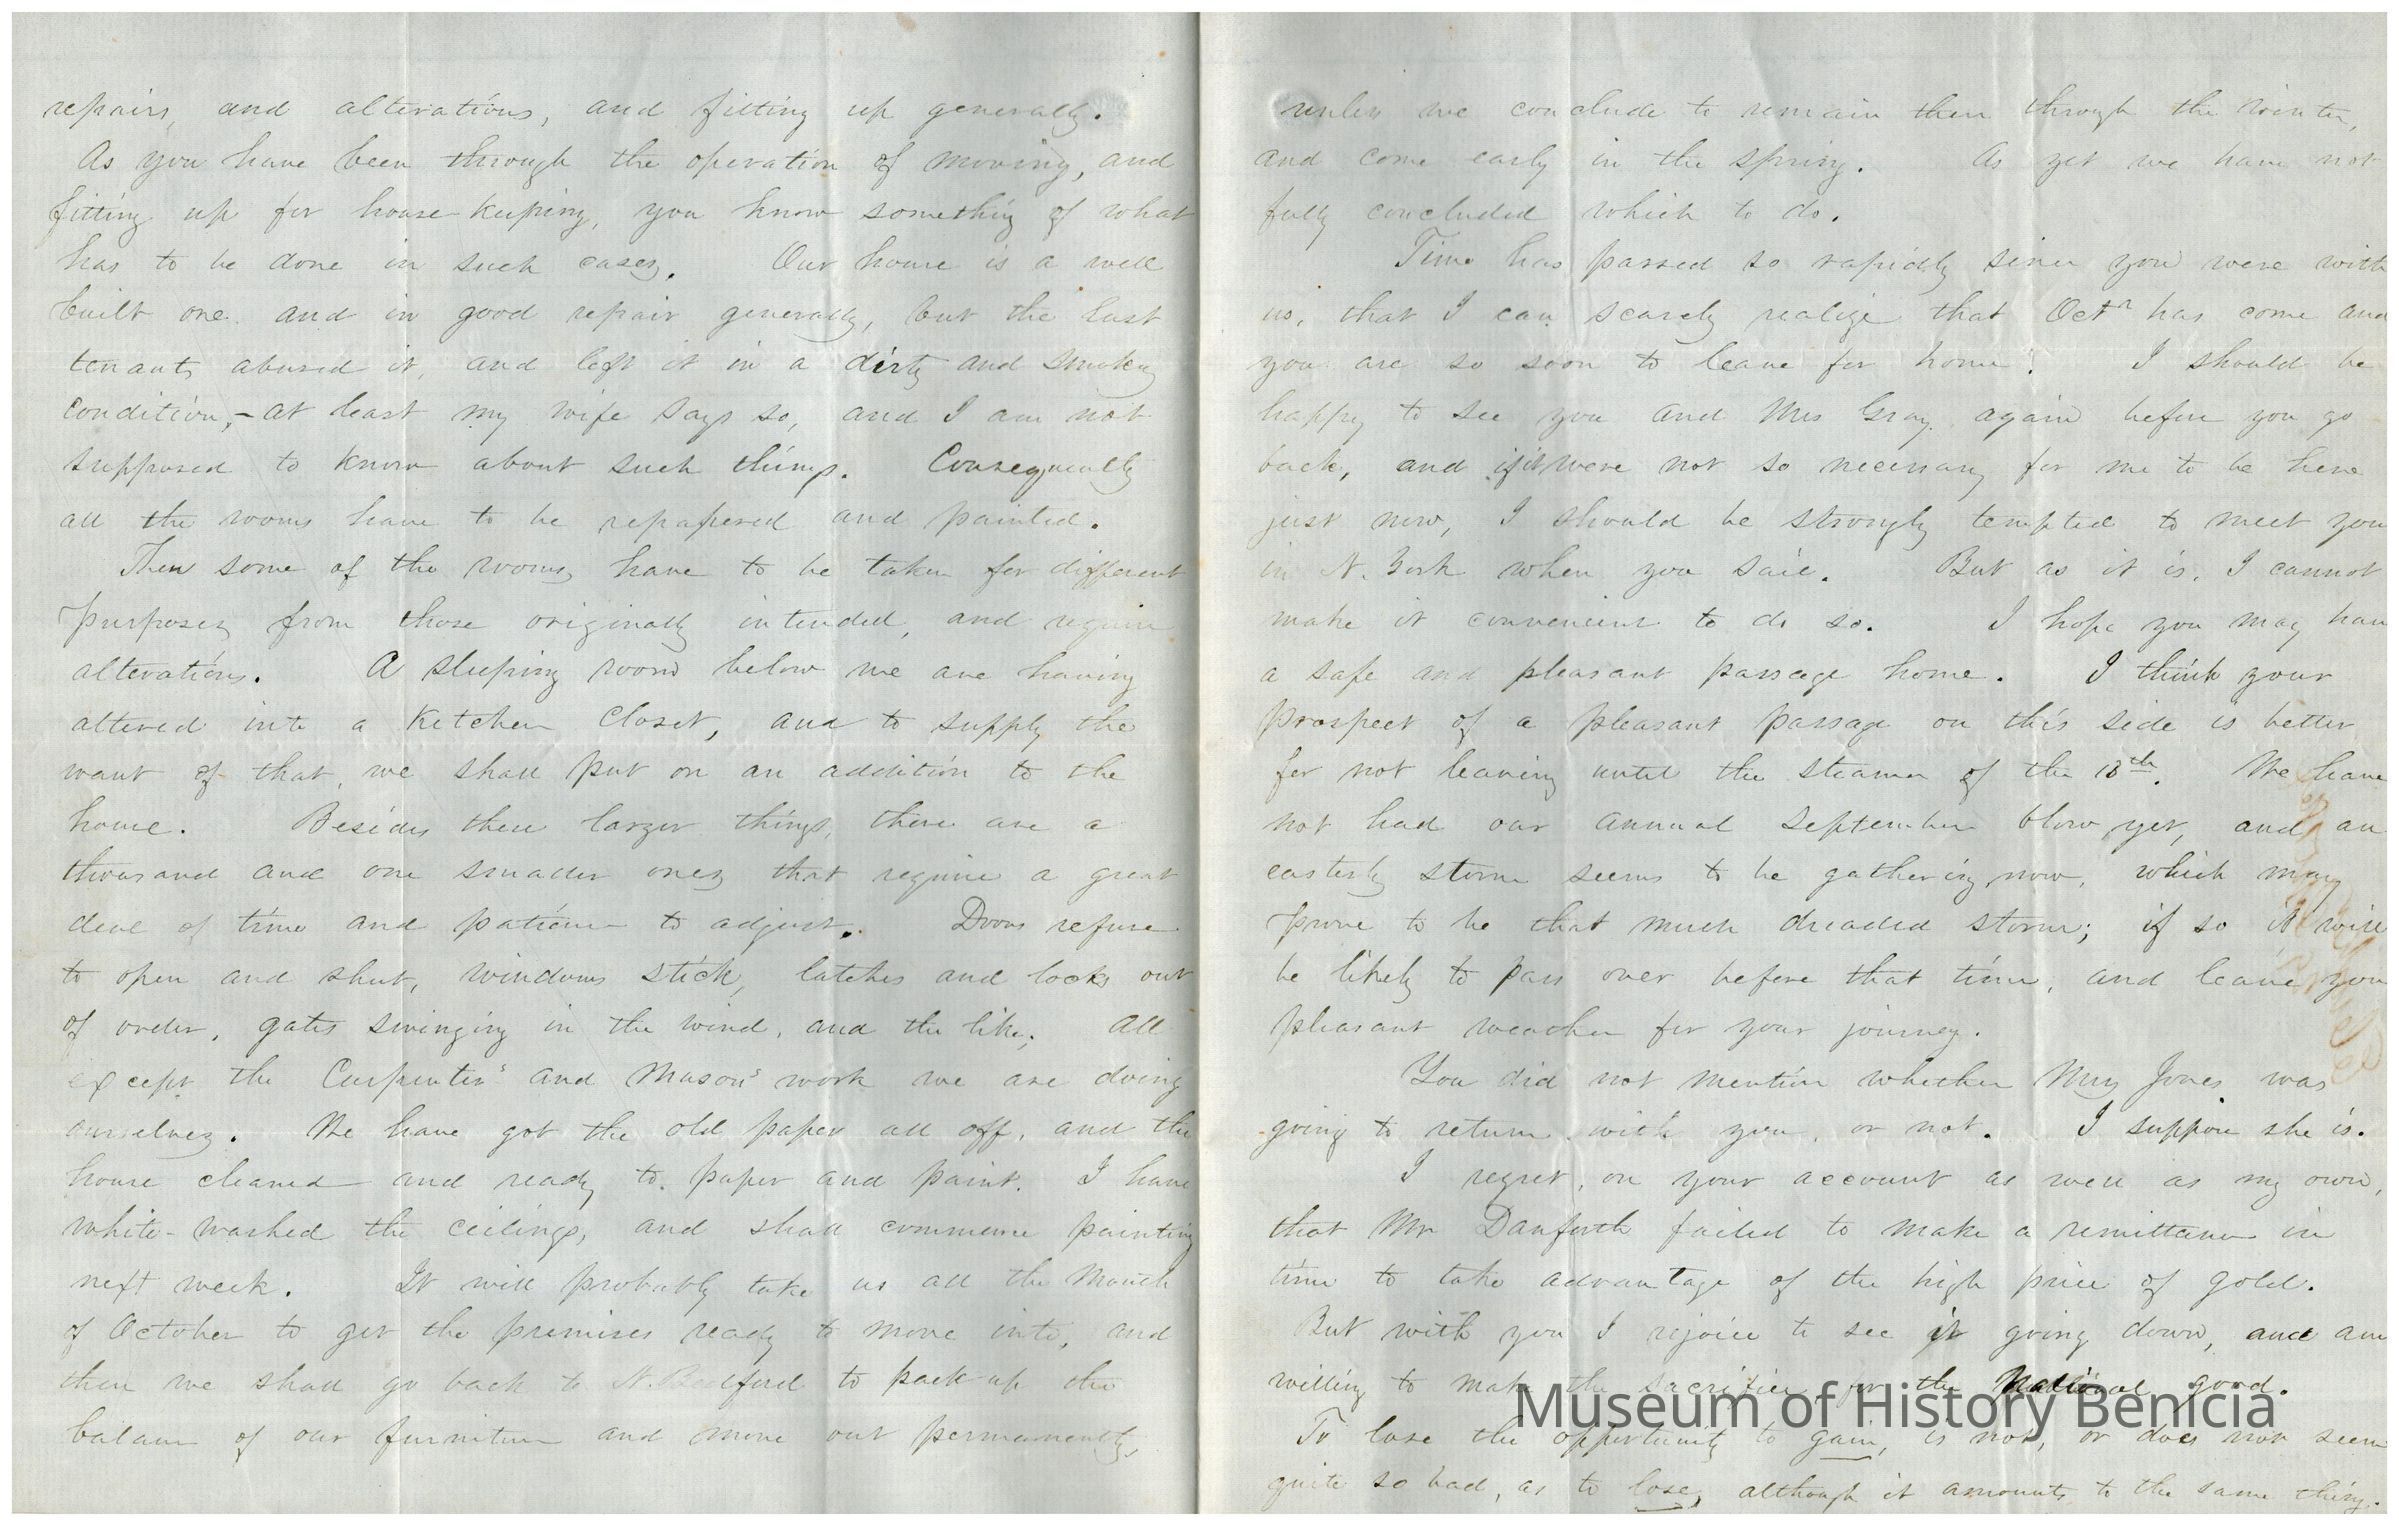 repairs, and alterations, and fitting up generally.
As you have been through the operation of moving, and
fitting up for house-keeping, you know something of what
has to be done in such cases. Our house is a well
built one and in good repair generally, but the last
tenants abused it, and left it in a dirty and smokey
condition,- at least my wife says so, and I am not
supposed to know about such things. Consequently
all the rooms have to be repapered and painted.
Then some of the rooms have to be taken for different
purposes from those originally intended, and require
alterations. A sleeping room below we are having
altered into a Kitchen Closet, and to supply the
want of that, we shall put on an addition to the
house. Besides these larger things, there are a
thousand and one smaller ones that require a great
deal of time and patience to adjust. Doors refuse
to open and shut, windows stick, latches and locks out
of order, gates swinging in the wind, and the like; all
except the Carpenters' and Mason's work we are doing
ourselves. We have got the old paper all off, and the
house cleaned and ready to paper and paint. I have
white-washed the ceilings, and shall commence painting
next week. It will probably take us all the Month
of October to get the premises ready to move into, and
then we shall go back to N. Bedford to pack up the
balance of our furniture and move out permanently,
unless we conclude to remain there through the winter,
and come early in the spring. As yet we have not
fully concluded which to do.
Time has passed so rapidly since you were with
us, that I can scarcely realize that Octr has come and
you are so soon to leave for home! I should be
happy to see you and Mrs Gray again before you go
back, and if it were not so necessary for me to be here
just now, I should be strongly tempted to meet you
in N. York when you sail. But as it is, I cannot
make it convenient to do so. I hope you may have
a safe and pleasant passage home. I think your
prospect of a pleasant passage on this side is better
for not leaving until the steamer of the 13th. We have
not had our annual September blow yet, and an
easterly storm seems to be gathering now, which may
prove to be that much dreaded storm; if so it will
be likely to pass over before that time, and leave you
pleasant weather for your journey.
You did not mention whether Mrs Jones was
going to return with you, or not. I suppose she is.
I regret, on your account as well as my own,
that Mr Danforth failed to make a remittance in
time to take advantage of the high price of gold.
But with you I rejoice to see it going down, and am
willing to make the sacrifice for the National good.
To lose the opportunity to gain, is not, or does not seem
quite so bad, as to lose, although it amounts to the same thing.
Museum of History Benicia